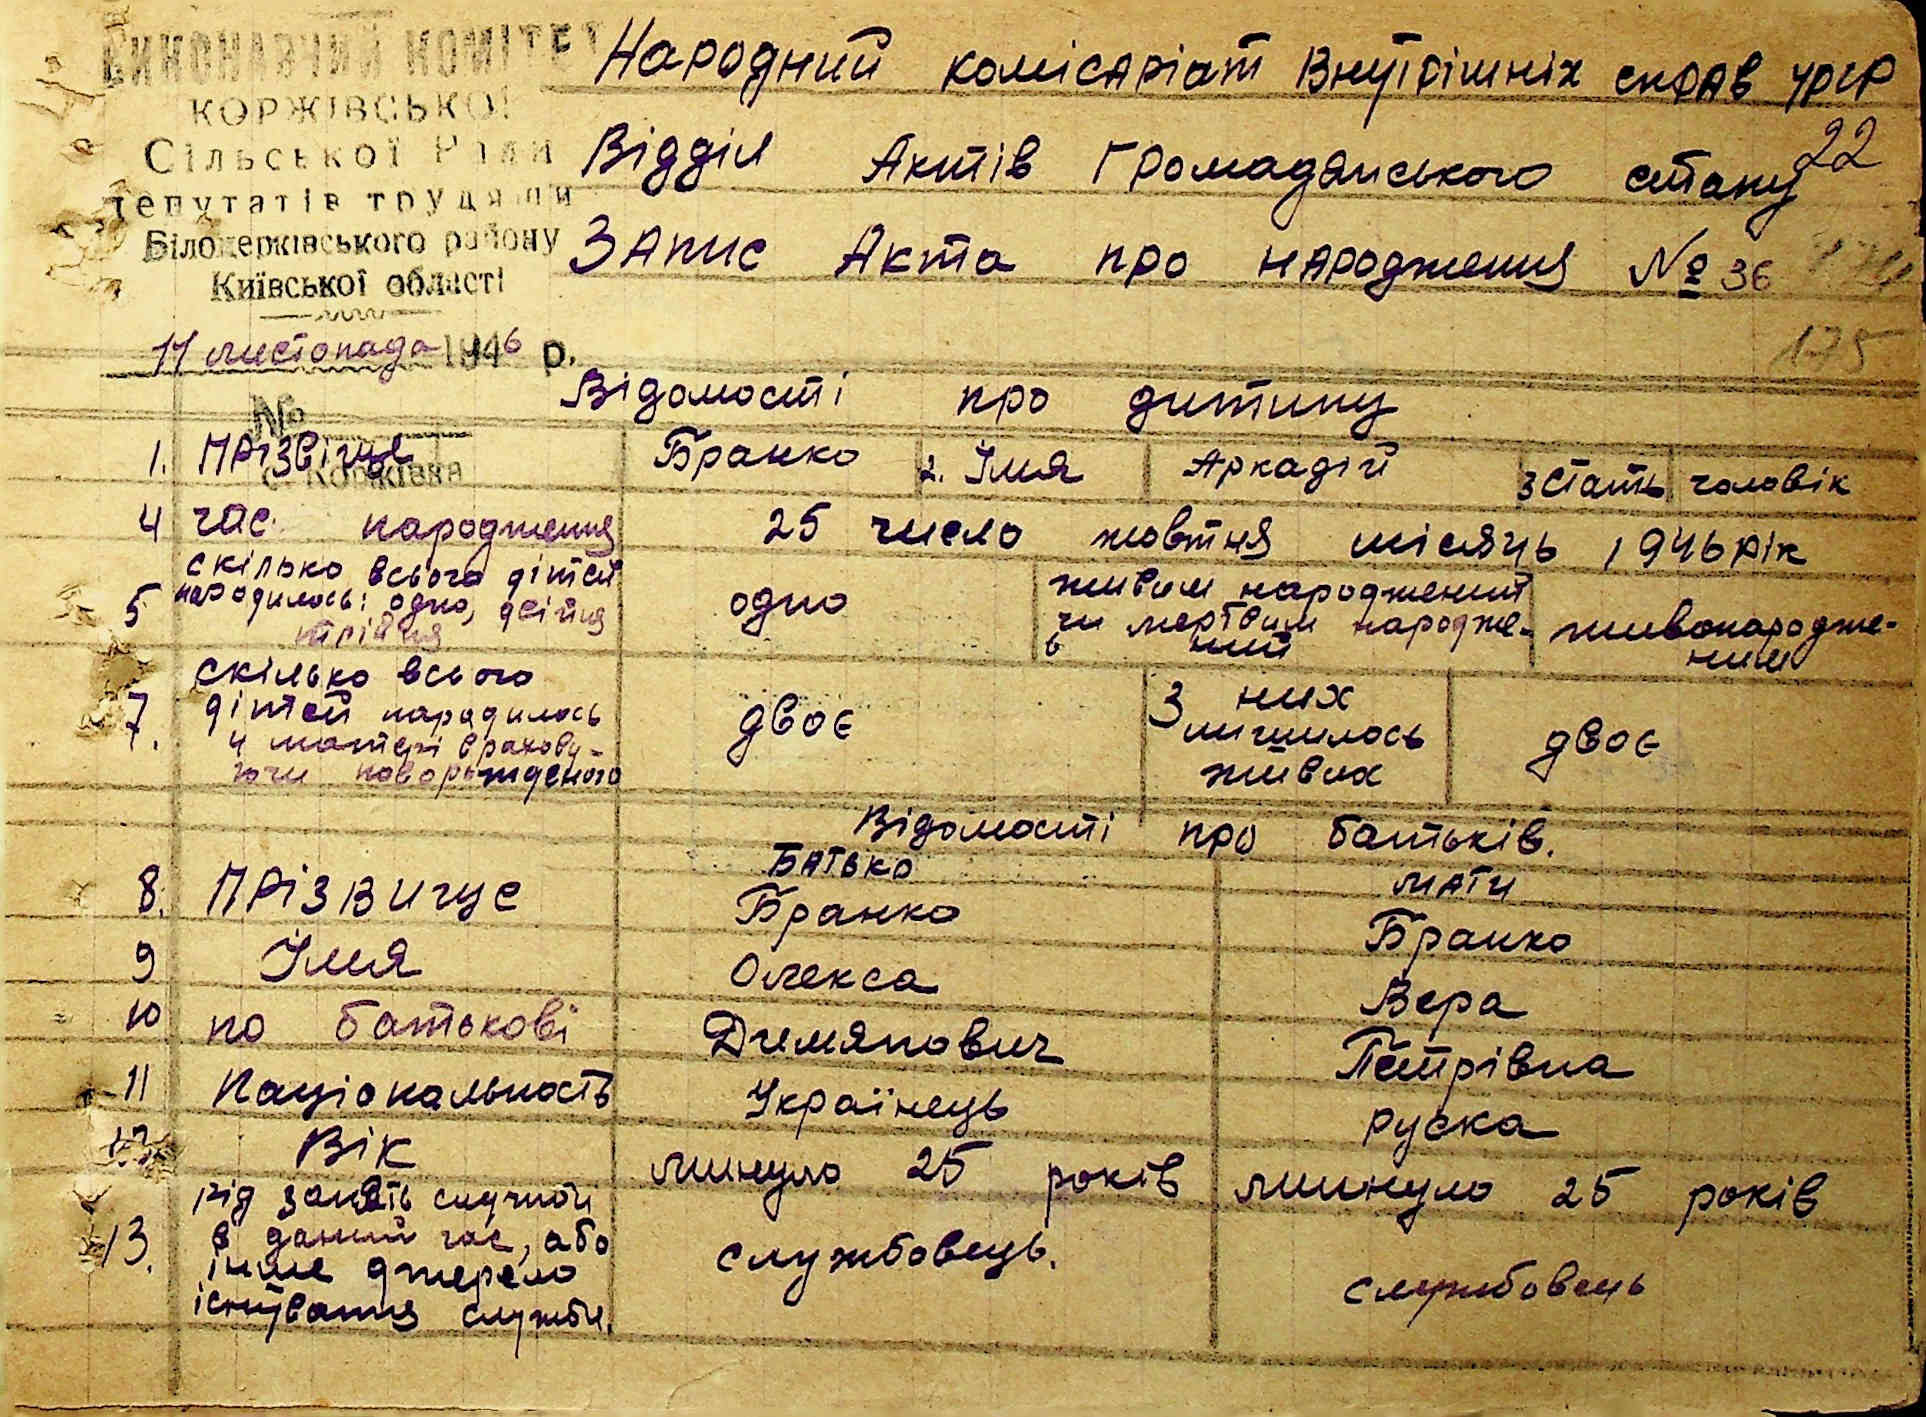 ВИКОНАВЧИЙ КОМІТЕТ
КОРЖІВСЬКОЇ
Сільської Ради
депутатів трудящих
Білоцерківського району
Київської області
11 листопада 1946 р.
№
с. Коржівка
Народний комісаріат Внутрішніх справ УРСР
22
Відділ Актів Громадянського стану
Запис Акта про народження № 36
175
Відомості про дитину
1. Прізвіще Бранко 2. Імя Аркадій 3 Стать чоловік
4 час народження 25 число жовтня місяць 1946 рік
5 скілько всього дітей
народилось: одно, двійня
трійня
одно
6 живим народжений
чи мертвим народже-
ний
живонародже-
ним
7. скілько всього
дітей народилось
у матері врахову-
ючи новорожденого
двоє
З них
лишилось
живих
двоє
Відомості про батьків.
Батько Мати
8. Прізвище Бранко Бранко
9 Імя Олекса Вера
10 по батькові Димянович Петрівна
11 Національность Українець руска
12 Вік минуло 25 років минуло 25 років
13. рід занять службы
в даний час, або
інше джерело
існування служби.
службовець.
службовець